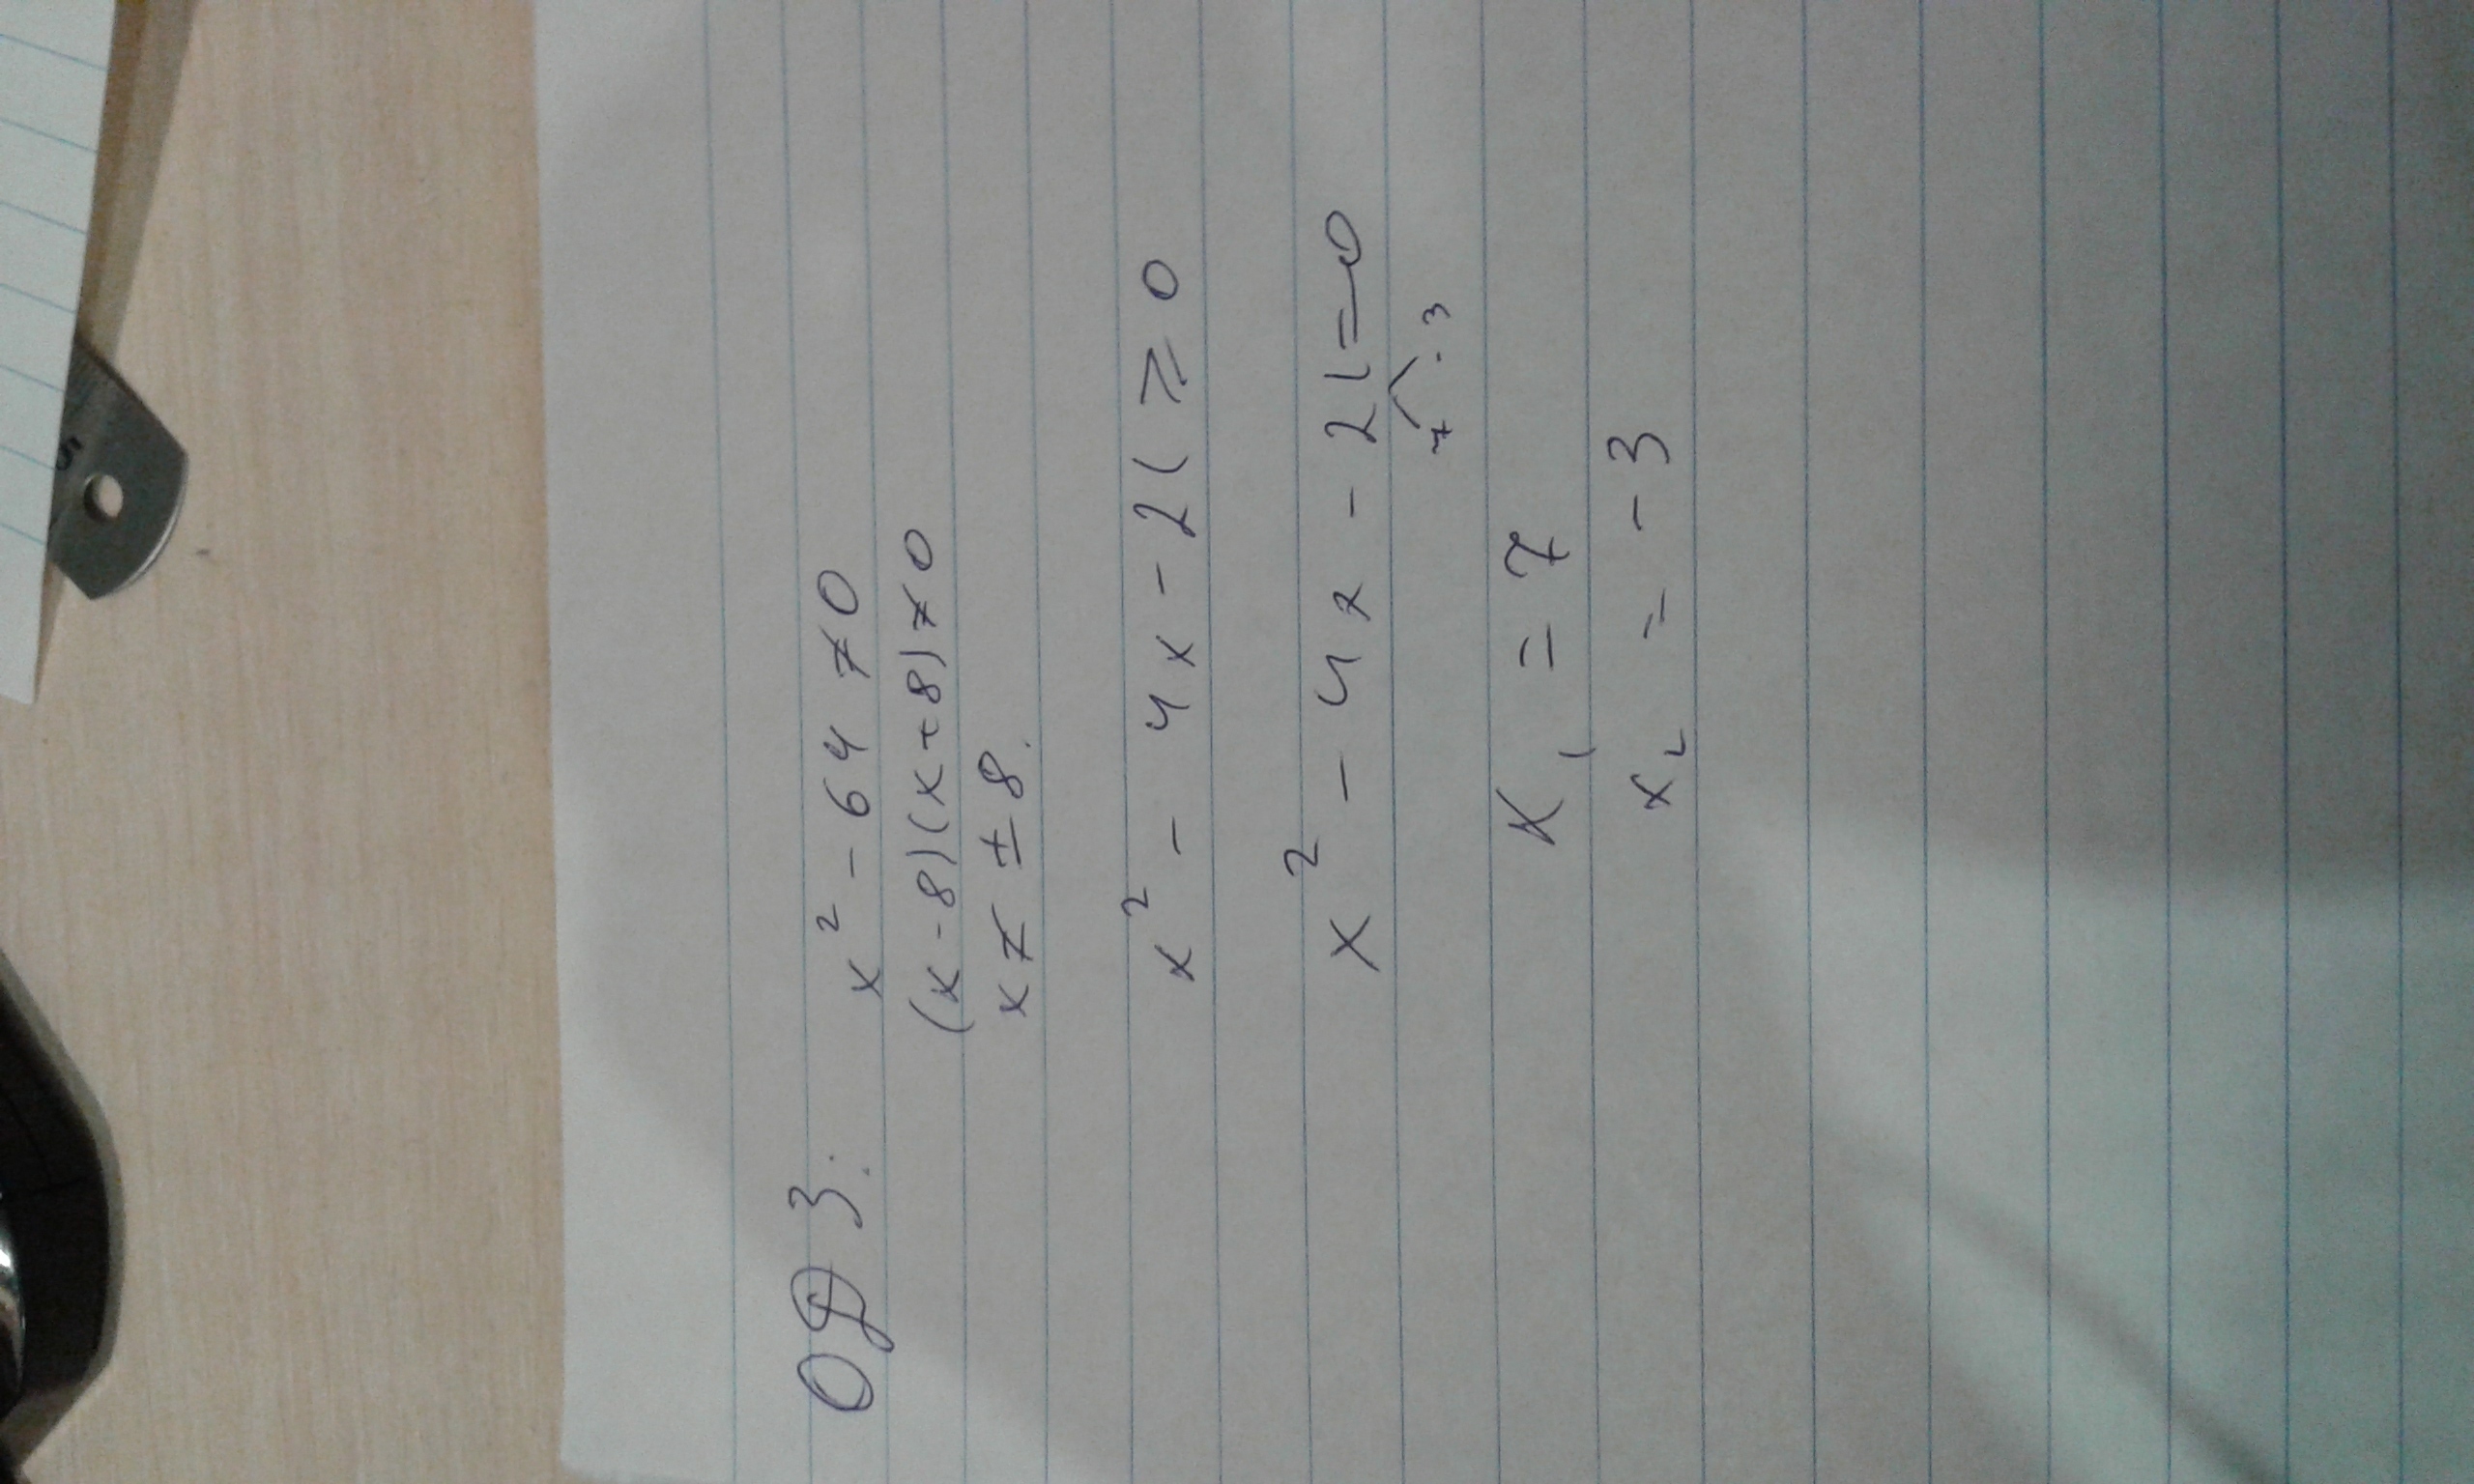 ОДЗ: x² - 64 ≠ 0
(x-8)(x+8) ≠ 0
x ≠ ± 8.
x² - 4x - 21 ≥ 0
x² - 4x - 21 = 0
7 -3
x₁ = 7
x₂ = -3
5